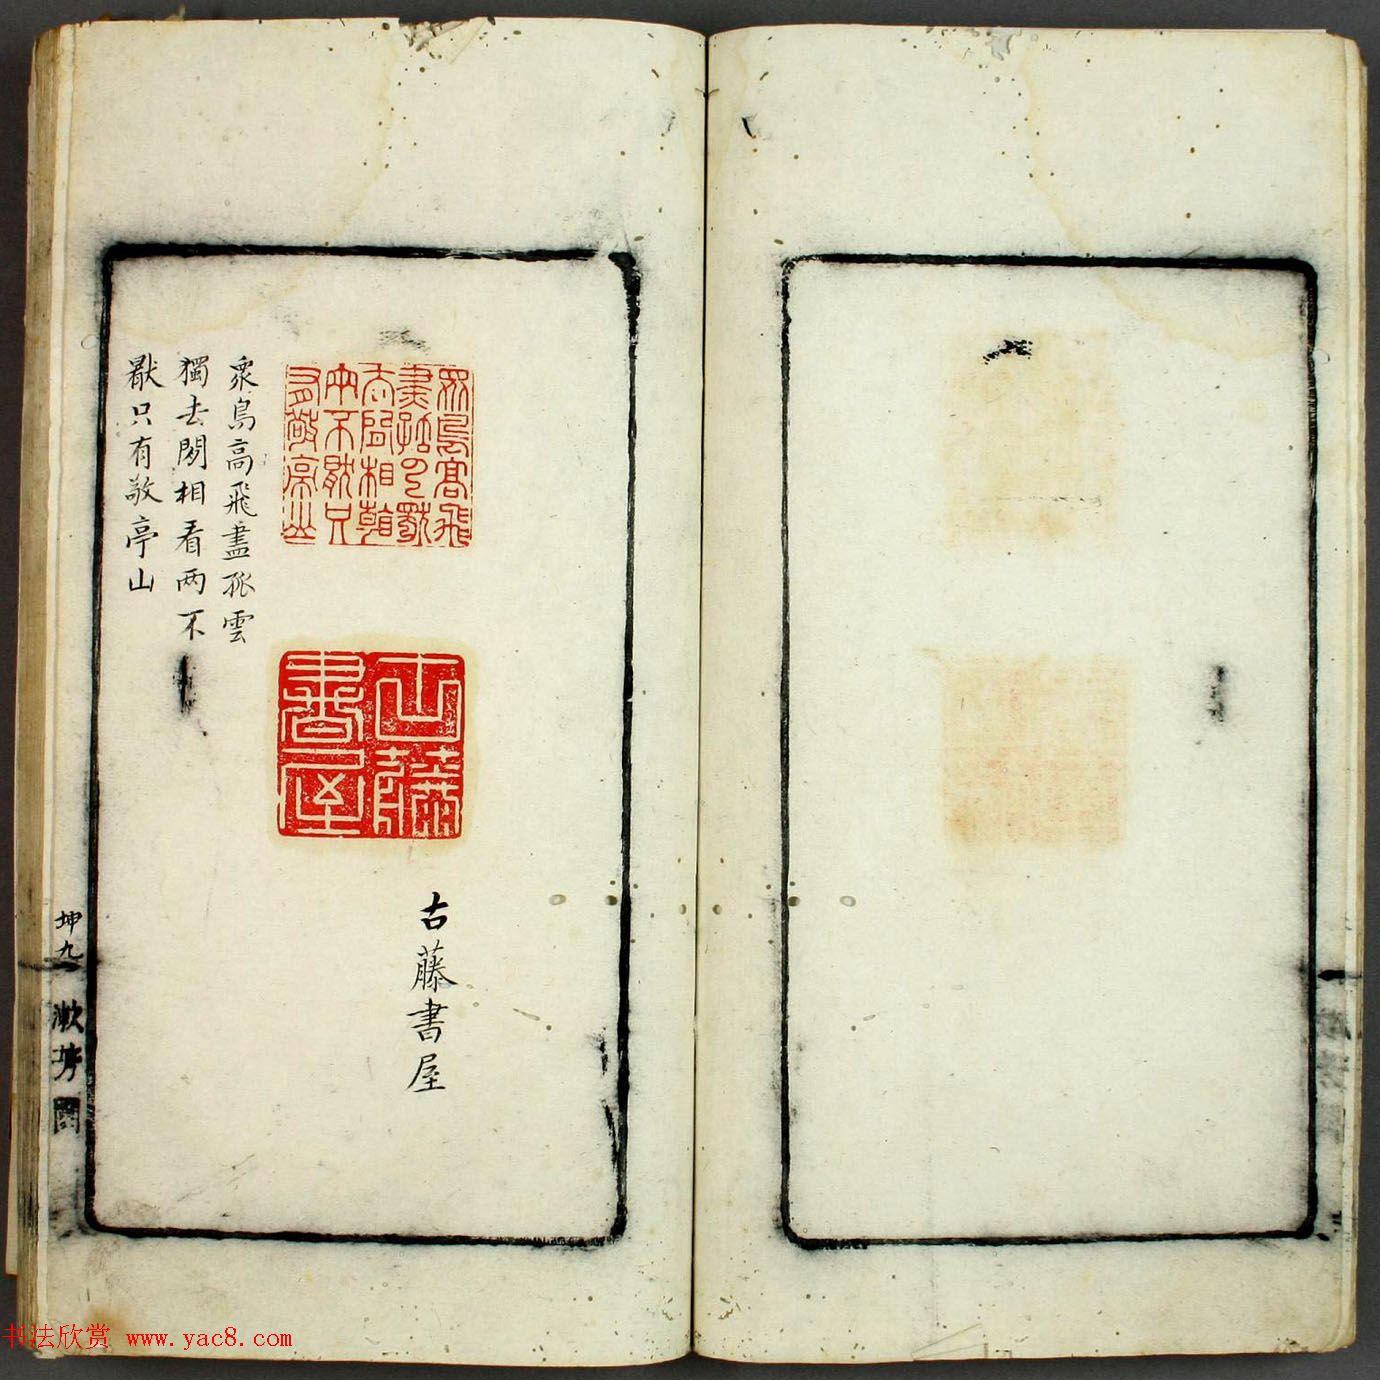 眾鳥高飛
盡孤云獨
去閒相看
兩不猒只
有敬亭山
衆鳥高飛盡孤雲
獨去閑相看两不
猒只有敬亭山
古藤
書屋
古藤書屋
坤九
漱芳
书法欣赏 www.yac8.com